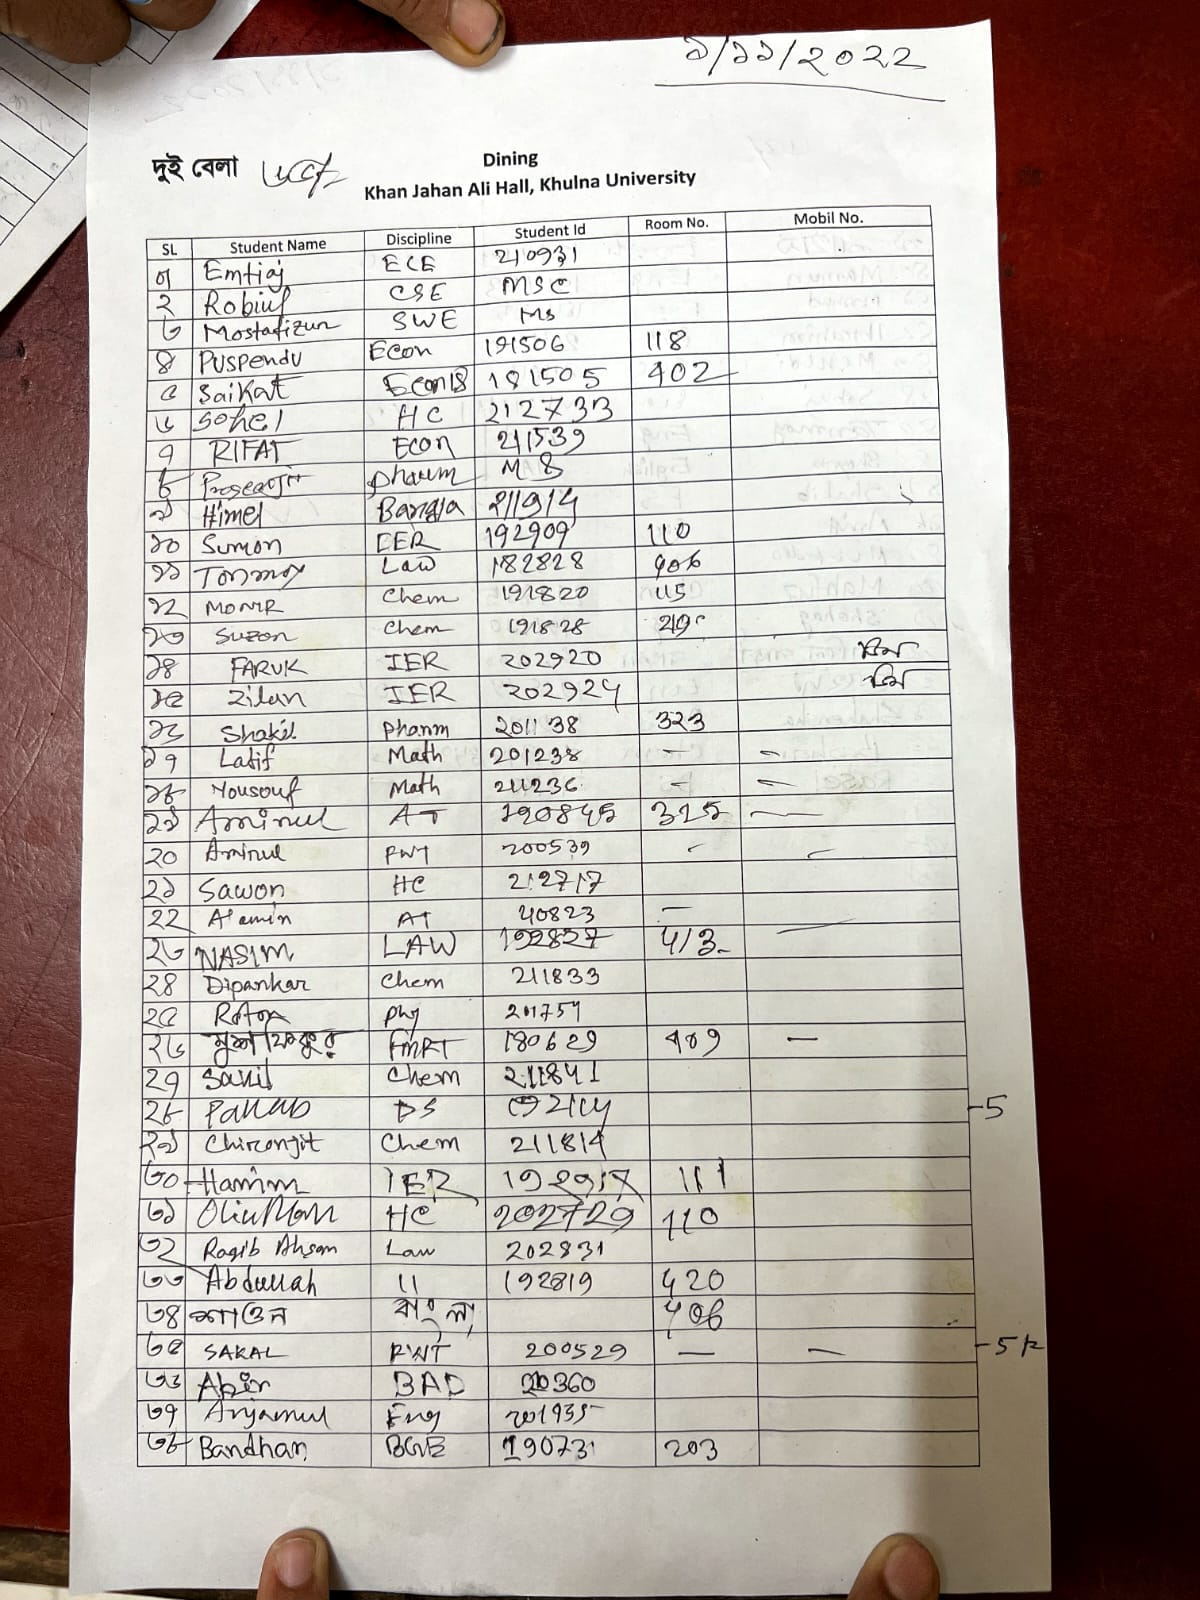 ৯/১১/২০২২
দুই বেলা
Dining
Khan Jahan Ali Hall, Khulna University
SL Student Name Discipline Student Id Room No. Mobil No.
Emtiaj ECE 210931
২ Robiul CSE MSC
৩ Mostafizur SWE Ms
৪ PUSPENDU Econ 191506 118
৫ Saikat Econ18 181505 402
৬ Sohel HC 212733
৭ RIFAT Econ 211539
৮ Prosenjit pharm MS
৯ Himel Bangla 211914
১০ Sumon EER 192909 110
১১ Tonmoy Law 182828 406
১২ MONIR Chem 191820 115
১৩ Suzon Chem 191828
১৪ FARUK IER 202920
১৫ Zilan IER 202924
১৬ Shakil Pharm 201138 323
১৭ Latif Math 201238 - -
১৮ Yousouf Math 211236 - -
১৯ Aminul AT 190845 325 -
২০ Aminul FWT 200539 - -
২১ Sawon HC 212717
২২ Al amin AT 40823 - -
২৩ NASIM LAW 192827 413
২৪ Dipankar Chem 211833
২৫ Raton phy 201754
২৬ মুশফিকুর FMRT 180629 409 -
২৭ Sahil Chem 211841
২৮ Pallab DS -5
২৯ Chironjit Chem 211814
৩০ Hamim IER 192917 111
৩১ HC 202729 110
৩২ Ragib Ahsan Law 202831
৩৩ Abdullah 11 192819 420
৩৪ শাওন বাংলা 406
৩৫ SAKAL FWT 200529 - - -5
৩৬ Abir BAD 360
৩৭ Eng 201935
৩৮ Bandhan BGE 190731 203